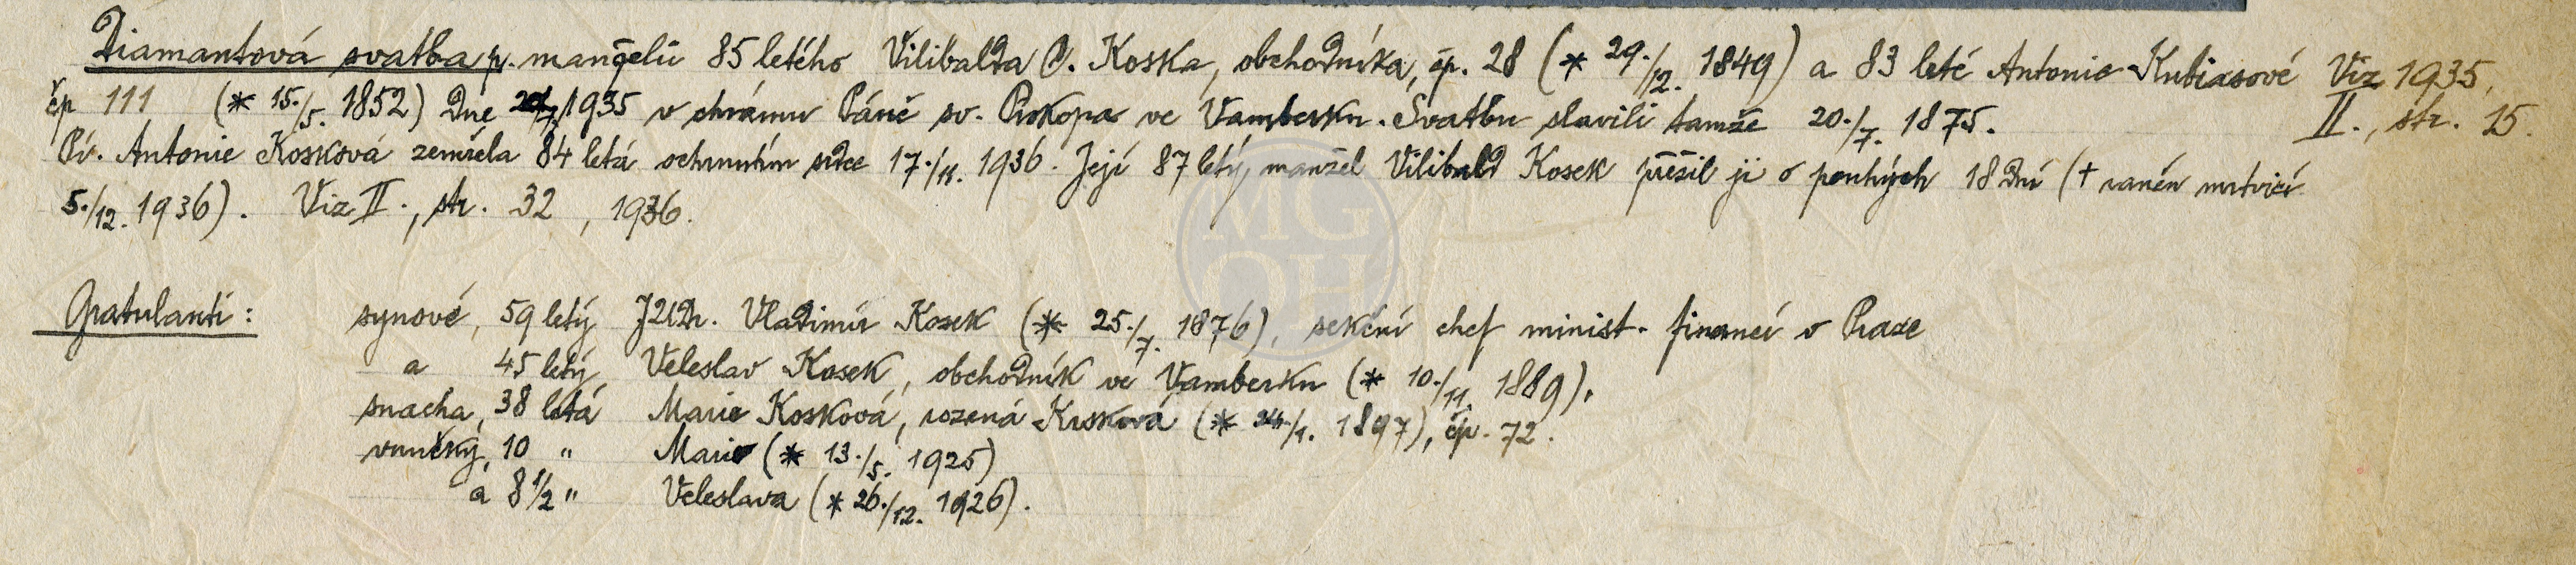 Diamantová svatba p. manželů 85 letého Vilibalda C. Koska, obchodníka, čp. 28 (* 29./12. 1849) a 83 leté Antonie Kubiasové Viz 1935,
čp 111 (* 15./5. 1852) dne 1935 v chrámu Páně sv. Prokopa ve Vamberku. Svatbu slavili tamže 20./7. 1875. II., str. 15.
Pí. Antonie Kosková zemřela 84 letá ochrnutím srdce 17./11. 1936. Její 87 letý manžel Vilibald Kosek přežil ji o pouhých 18 dní († raněn mrtvicí
5./12. 1936). Viz II., str. 32, 1936.
Gratulanti: synové, 59 letý JUDr. Vladimír Kosek (* 25./7. 1876), sekční chef minist. financí v Praze
a 45 letý Veleslav Kosek, obchodník ve Vamberku (* 10./11. 1889).
snacha, 38 letá Marie Kosková, rozená Krsková (* 24./1. 1897), čp. 72.
vnučky, 10 " Marie (* 13./5. 1925)
a 8 1/2 " Veleslava (* 26./12. 1926).
MG
OH